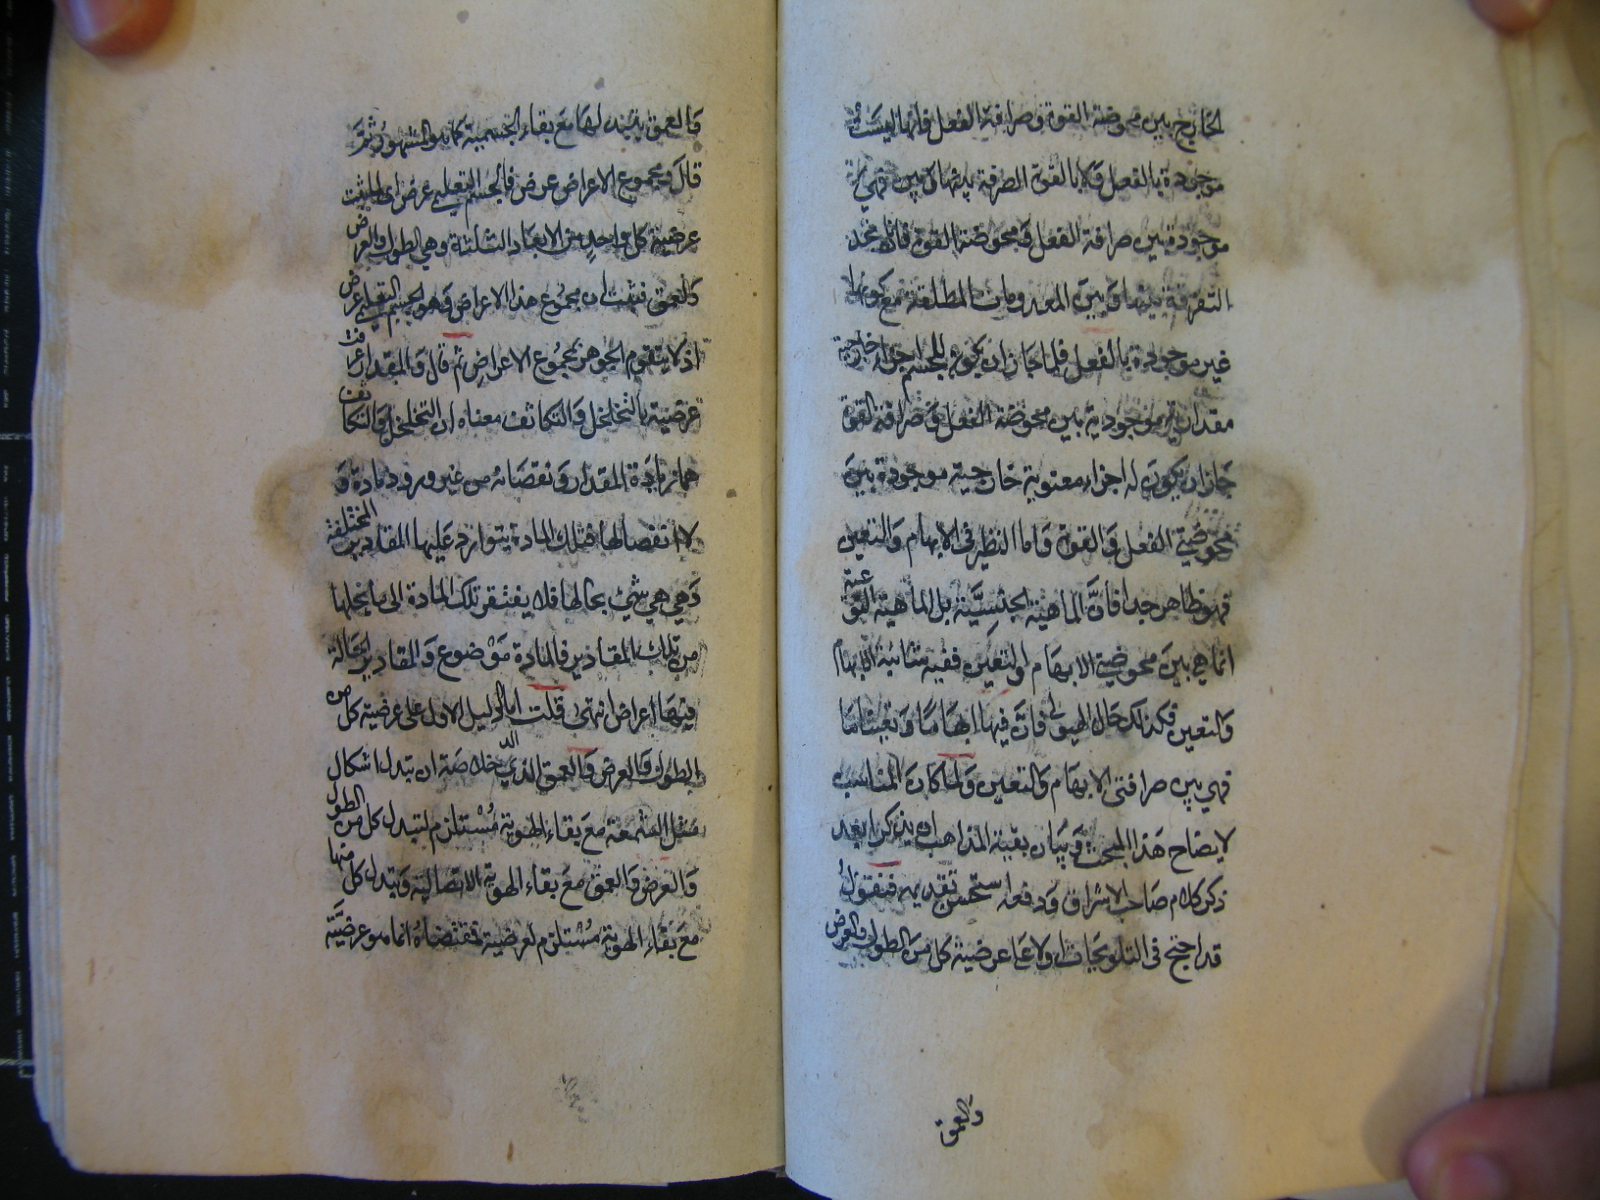 الخارج بين محوضة القوة وصرافة الفعل فانها ليست
موجودة بالفعل ولا بالقوة الصرفة بل بينهما فهي
موجودة بين صرافة الفعل ومحوضة القوة فانا نجد
التفرقة بينها وبين المعدومات المطلقة مع كونها
غير موجودة بالفعل فلما جاز ان يكون للجسم اجزاء خارجية
مقدارية موجودة بين محوضة الفعل وصرافة القوة
جاز ان يكون له اجزاء معنوية خارجية موجودة بين
محوضتي الفعل والقوة واما النظير في الابهام والتعين
فهو ظاهر جدا فان الماهية الجنسية بل الماهية النوعية
انما هي بين محوضتي الابهام والتعين ففيه شائبة الابهام
والتعين فكذلك حال الهيولى فان فيها ابهاما وتعينا ما
فهي بين صرافتي الابهام والتعين ولما كان المناسب
لايضاح هذا المبحث وبيان بقية المذاهب ان يذكر بعد
ذكر كلام صاحب الاشراق ودفعه استحسن تقديمه فنقول
قد احتج في التلويحات اولا على عرضية كل من الطول والعرض
والعمق
والعمق بتبدلها مع بقاء الجسمية كما هو المشهور ثم
قال ومجموع الاعراض عرض فالجسم التعليمي عرض اى اذا ثبت
عرضية كل واحد من الابعاد الثلثة وهي الطول والعرض
والعمق فثبت ان مجموع هذا الاعراض وهو الجسم التعليمي عرض
اذ لا يتقوم الجوهر بمجموع الاعراض ثم قال والمقدار عرفت
عرضيته بالتخلخل والتكاثف معناه ان التخلخل والتكاثف
هما زيادة المقدار ونقصانه من غير ورود مادة و
لا انفصالها فتلك المادة يتوارد عليها المقادير المختلفة
وهي هي شئ بحالها فلا يفتقر تلك المادة الى ما يحلها
من تلك المقادير فالمادة موضوع والمقادير الحالة
فيها اعراض انتهى قلت اما الدليل الاول على عرضية كل من
الطول والعرض والعمق الذي خلاصته ان تبدل اشكال
مثل الشمعة مع بقاء الهوية مستلزم لتبدل كل من الطول
والعرض والعمق مع بقاء الهوية الاتصالية وتبدل كل منها
مع بقاء الهوية مستلزم لعرضيته فمقتضاه انما هو عرضية